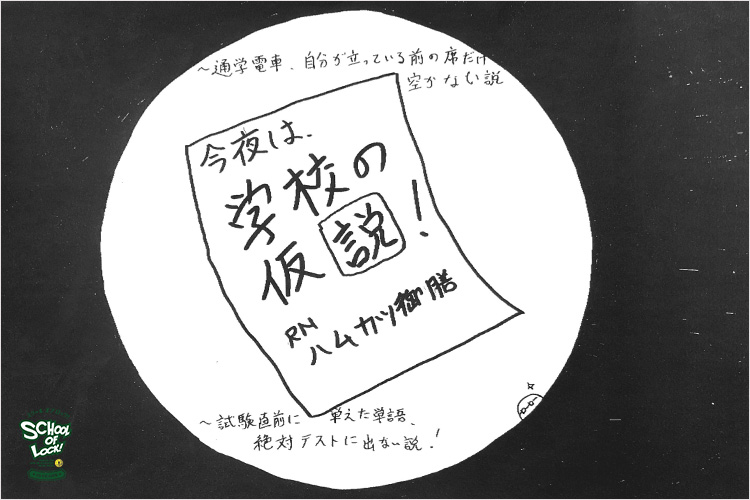 ~通学電車、自分が立っている前の席だけ
空かない説
今夜は、
学校の
仮説!
RN
ハムカツ御膳
~試験直前に 覚えた単語、
絶対テストに出ない説!
SCHOOL
OF
LOCK!